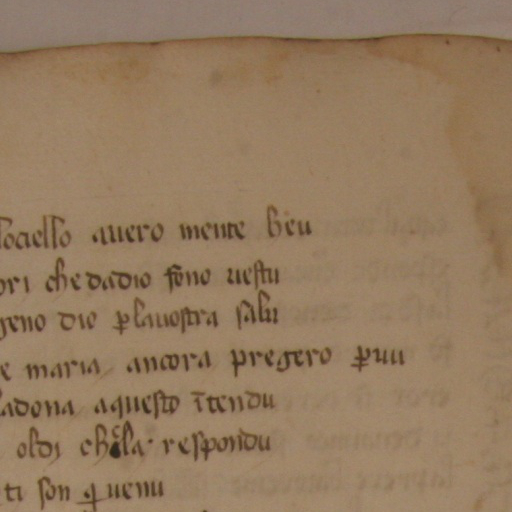 lociello auero mente beu
ori che dadio sono uestu
geno dio plauostra salu
e maria ancora pregero puu
adona aquesto ītendu
oldi chela respondu
ti son q uenu